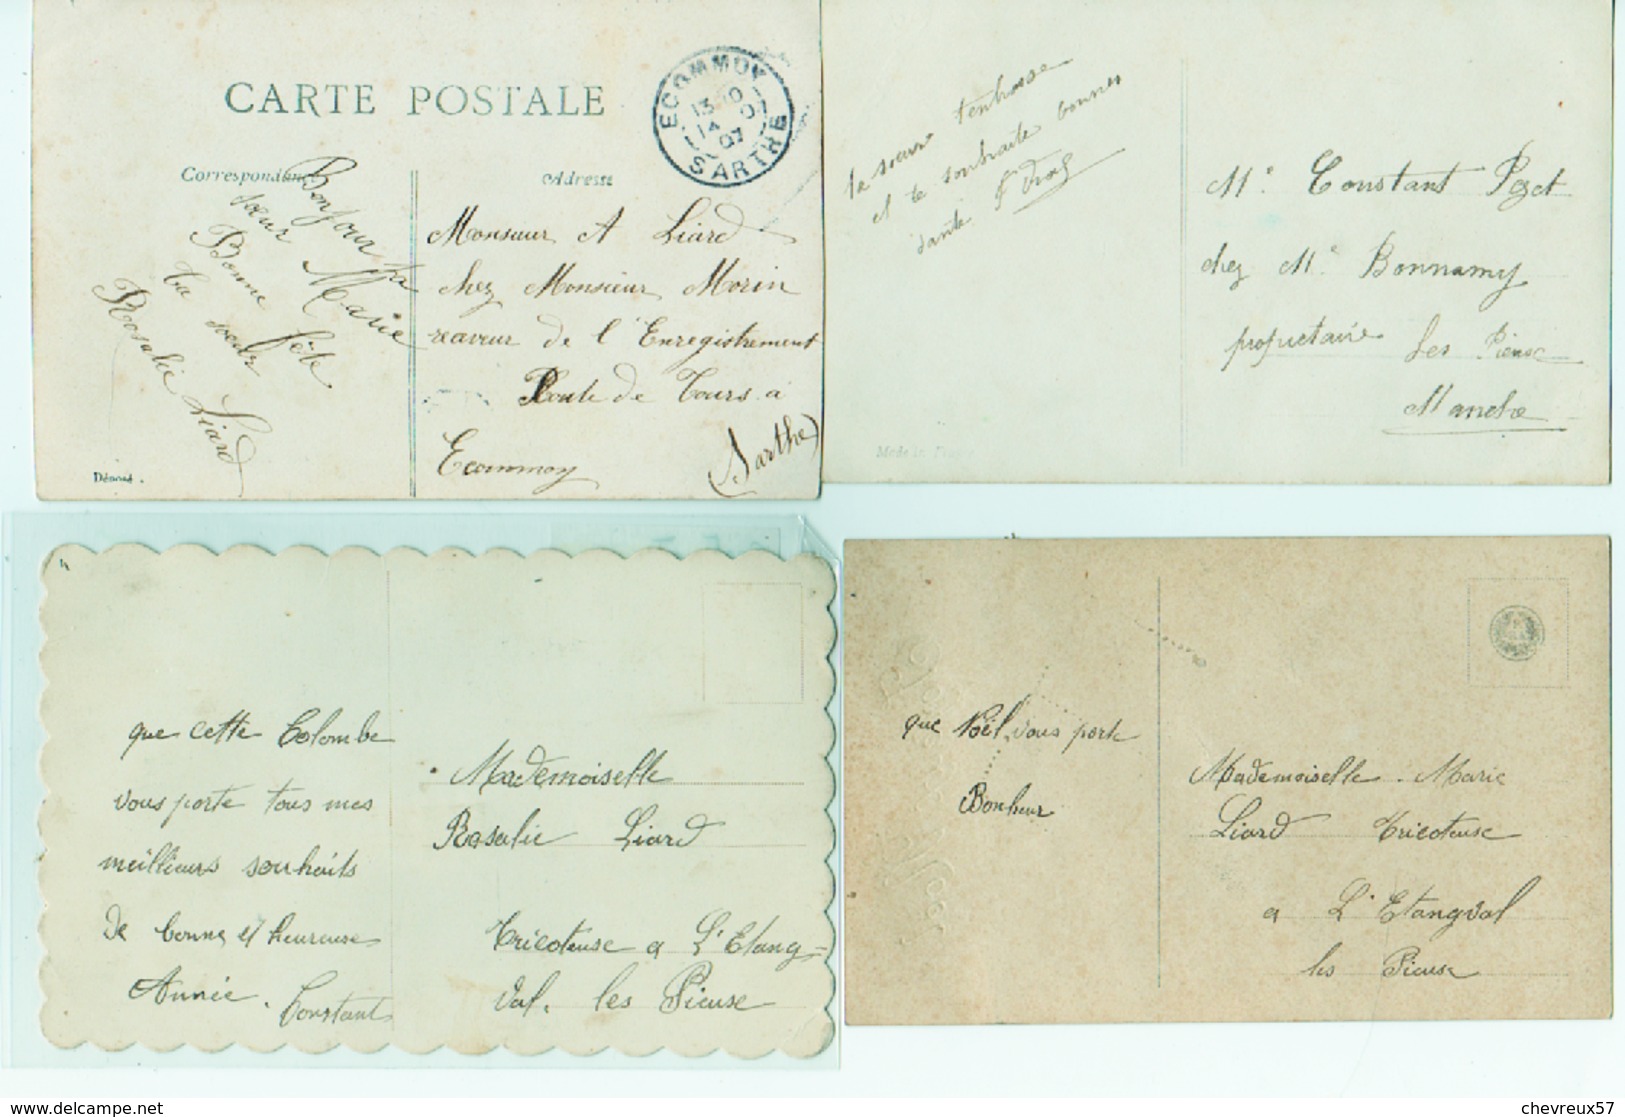 CARTE POSTALE
ECOMMOY
13 10
14 - 9
07
SARTHE
Correspondance
Adresse
Bonjour ta
sœur Marie
Bonne fête
ta sœur
Rosalie Liard
Monsieur A Liard
chez Monsieur Morin
receveur de l'Enregistrement
Route de Tours à
Ecommoy
(Sarthe)
Dénoué.
ta sœur tenbrasse
et te souhaite bonnes
santé
Mr. Constant Pezet
chez Mr. Bonnamy
propriétaire les Pieuse
Manche
Made in France
que cette Colombe
vous porte tous mes
meilleurs souhaits
de bonne et heureuse
Année. Constant
Mademoiselle
Rosalie Liard
tricoteuse a L'Etang=
val. les Pieuse
que Noël vous porte
Bonheur
Mademoiselle. Marie
Liard tricoteuse
a L'Etangval
les Pieuse
picclick & delcampe.net
chevreux57